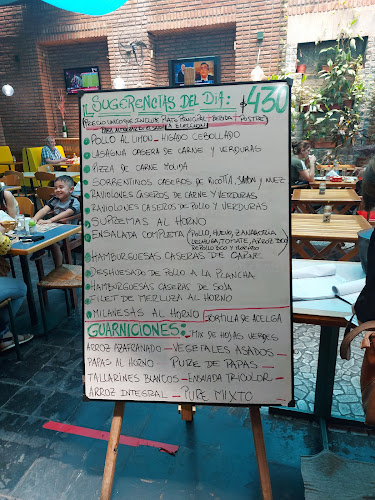 SUGERENCIAS DEL DIA: $430
(PRECIO UNICO QUE INCLUYE: PLATO PRINCIPAL - BEBIDA - POSTRE)
PARA ALMORZAR EN SALON A ELECCION
POLLO AL LIMON - HIGADO CEBOLLADO
LASAGNA CASERA DE CARNE Y VERDURAS
PIZZA DE CARNE MOLIDA
SORRENTINOS CASEROS DE RICOTA, JAMON Y NUEZ
RAVIOLONES CASEROS DE CARNE Y VERDURAS
RAVIOLONES CASEROS DE POLLO Y VERDURAS
SUPREMAS AL HORNO
ENSALADA COMPLETA (POLLO, HUEVO, ZANAHORIA
LECHUGA, TOMATE, ARROZ
HAMBURGUESAS CASERAS DE CARNE
DESHUESADO DE POLLO A LA PLANCHA
HAMBURGUESAS CASERAS DE SOJA
FILET DE MERLUZA AL HORNO
MILANESAS AL HORNO - TORTILLA DE ACELGA
GUARNICIONES: - MIX DE HOJAS VERDES
ARROZ AZAFRANADO - VEGETALES ASADOS -
PAPAS AL HORNO - PURE DE PAPAS -
TALLARINES BLANCOS - ENSALADA TRICOLOR -
ARROZ INTEGRAL - PURE MIXTO -